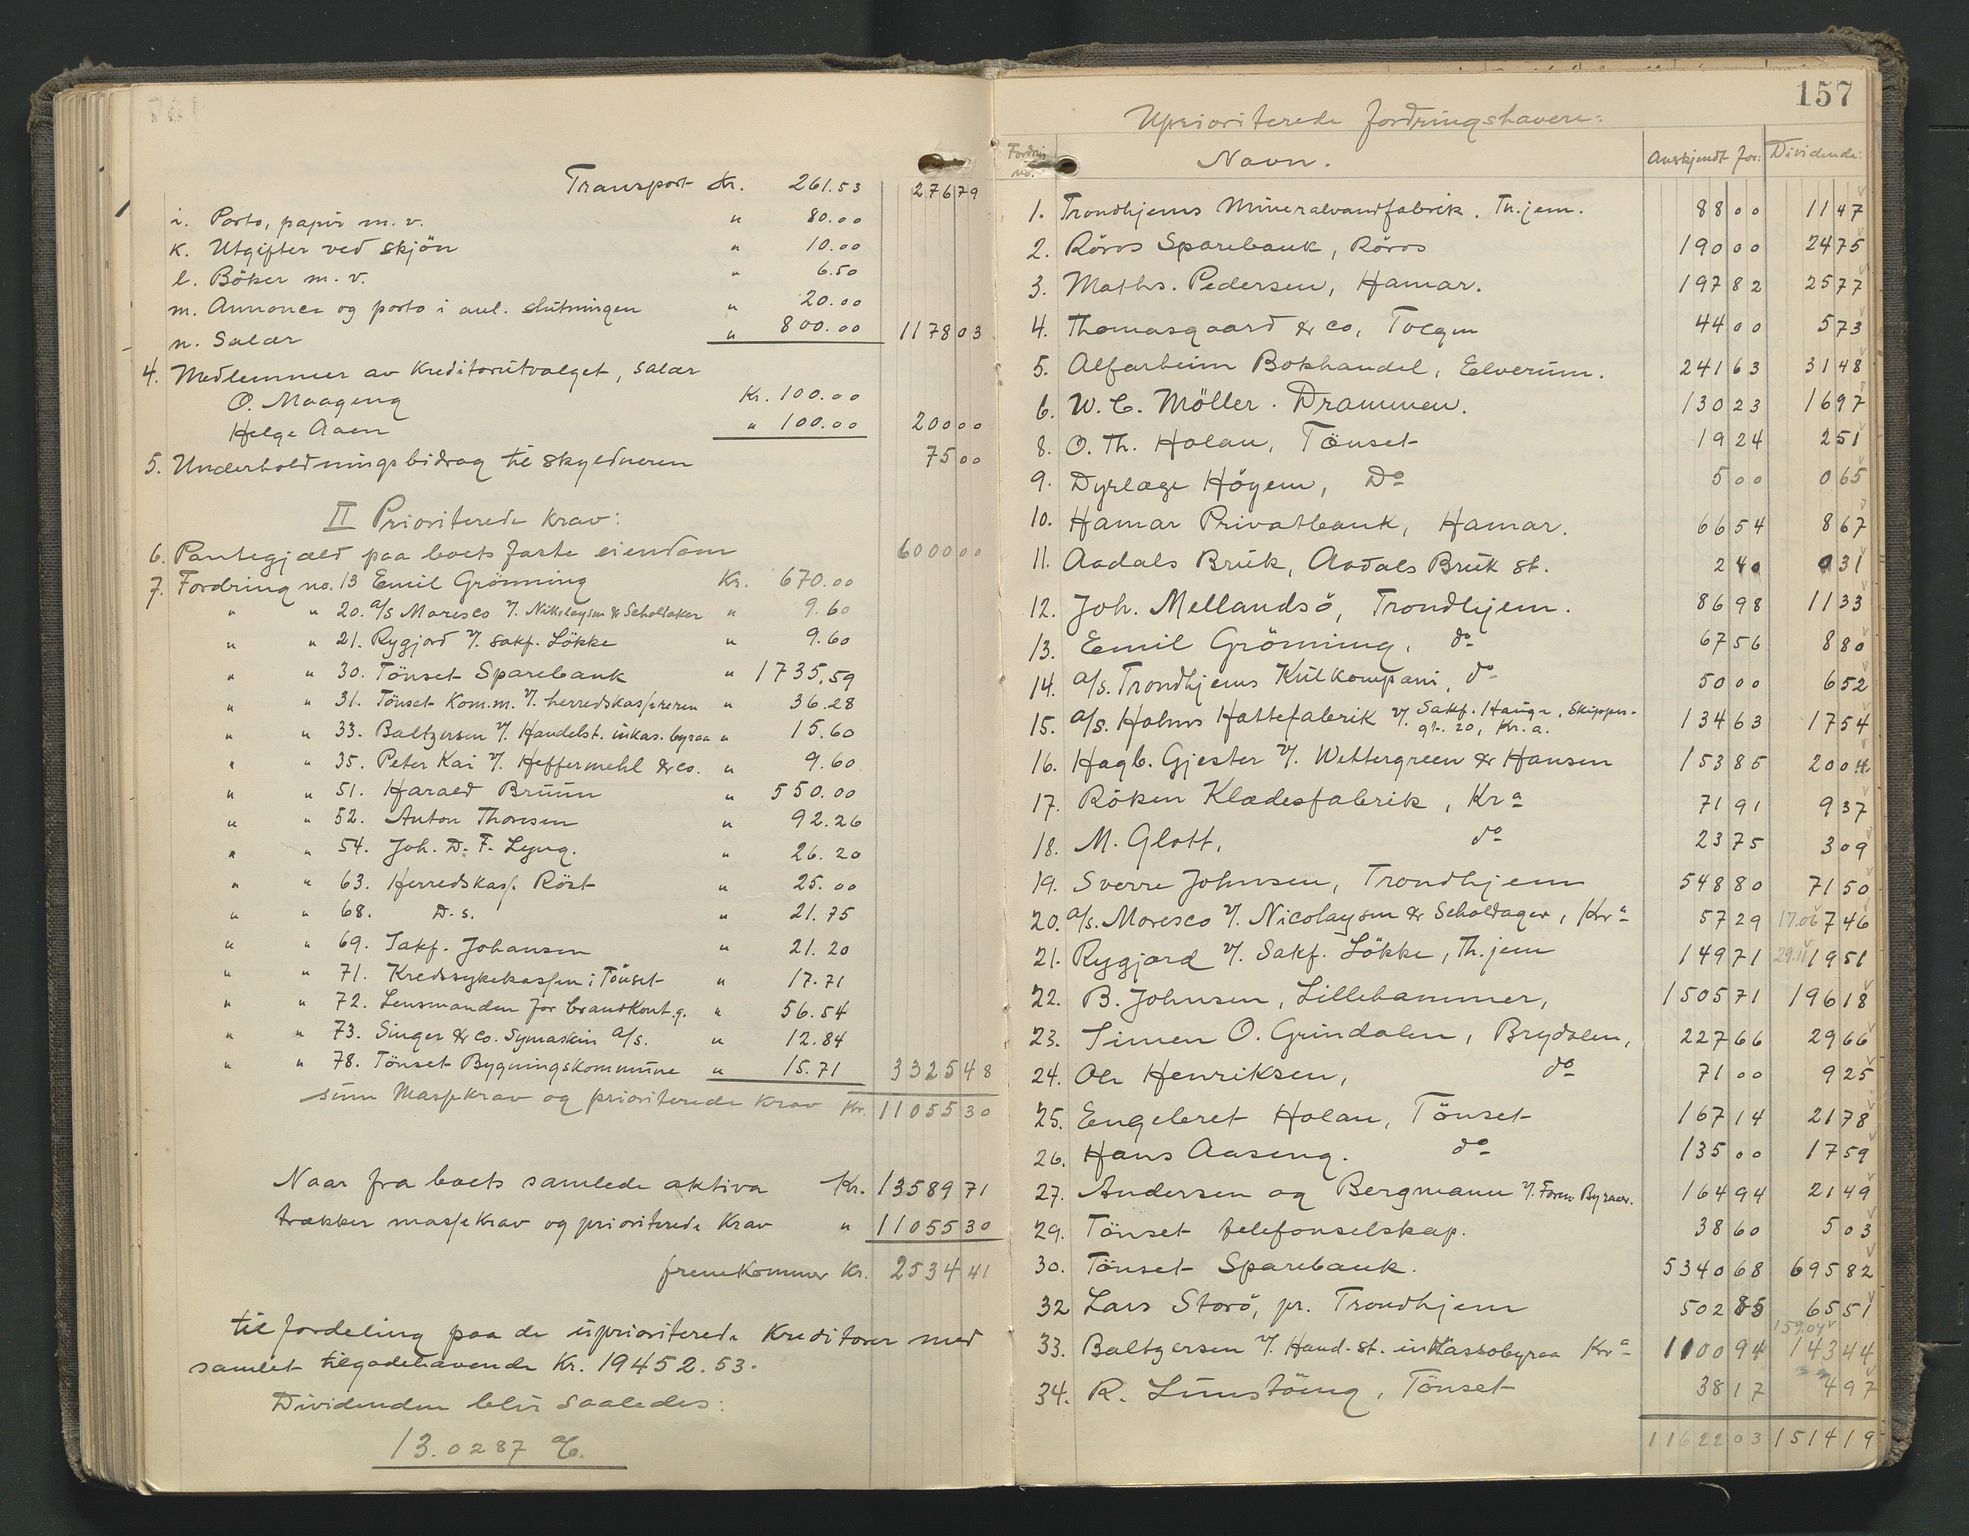 Transport Kr. 261.53 276 79
i. Porto, papir m. v. " 80.00
k. Utgifter ved skjön " 10.00
l. Böker m. v. " 6.50
m. Annonce og porto i anl. slutningen " 20.00
n. Salær " 800.00 1178 03
4. Medlemmer av kreditorutvalget, salær
O. Maageng Kr. 100.00
Helge Aaen " 100.00 200 00
5. Underholdningsbidrag til skyldneren 75 00
II Prioriterede krav:
6. Pantegjæld paa boets faste eiendom 6000 00
7. Fordring no. 13 Emil Grönning Kr. 670.00
" " 20. a/s Moresco v/. Nikolaysen & Scholdager " 9.60
" " 21. Rygjord v/. sakf. Lökke " 9.60
" " 30. Tönset Sparebank " 1735.59
" " 31. Tönset Kom.m. v/. herredskassereren " 36.28
" " 33. Baltzersen v/. Handelst. inkas. byraa " 15.60
" " 35. Peter Kai v/. Heffermehl & co. " 9.60
" " 51. Harald Bruun " 550.00
" " 52. Anton Thoresen " 92.26
" " 54. Joh. D. F. Lyng. " 26.20
" " 63. Herredskass. Röst " 25.00
" " 68. D. s. " 21.75
" " 69. Sakf. Johansen " 21.20
" " 71. Kredssykekassen i Tönset " 17.71
" " 72. Lensmanden for brandkont.g. " 56.54
" " 73. Singer & co. Symaskin a/s. " 12.84
" " 78. Tönset Bygningskommune " 15.71 3325 48
sum Massekrav og prioriterede krav Kr. 11055 30
Naar fra boets samlede aktiva Kr. 13589 71
trækker massekrav og prioriterede krav " 11055 30
fremkommer Kr. 2534 41
til fordeling paa de uprioriterede kreditorer med
samlet tilgodehavende Kr. 19452.53.
Dividenden blir saaledes:
13.0287 %.
157
Uprioriterede fordringshavere:
Fordrin no. Navn. Anskjendt for: Dividende:
1. Trondhjems Mineralvandfabrik. Th.jem. 88 00 11 47
2. Röros Sparebank, Röros 190 00 24 75
3. Maths. Pedersen, Hamar. 197 82 25 77
4. Thomasgaard & co, Tolgen 44 00 5 73
5. Alfarheim Bokhandel, Elverum. 241 63 31 48
6. W. C. Möller. Drammen. 130 23 16 97
8. O. Th. Holan, Tönset 19 24 2 51
9. Dyrlæge Höyem, Do 5 00 0 65
10. Hamar Privatbank, Hamar. 66 54 8 67
11. Aadals Bruk, Aadals Bruk st. 2 40 0 31
12. Joh. Mellandsö, Trondhjem. 86 98 11 33
13. Emil Grönning, do 67 56 8 80
14. a/s. Trondhjems Kulkompani, do 50 00 6 52
15. a/s. Holms Hattefabrik v/. Sakf. Hauge, Skipper- gt. 20, Kr.a. 134 63 17 54
16. Hagb. Gjester v/. Wettergreen & Hansen 153 85 20 04
17. Röken Klædesfabrik, Kra 71 91 9 37
18. M. Glott, do 23 75 3 09
19. Sverre Johnsen, Trondhjem 548 80 71 50
20. a/s. Moresco v/. Nicolaysen & Scholdager, Kra 57 29 17.06 7 46
21. Rygjord v/. Sakf. Lökke, Th.jem 149 71 29.11 19 51
22. B. Johnsen, Lillehammer, 1505 71 196 18
23. Simen O. Grindalen, Brydalen, 227 66 29 66
24. Ole Henriksen, do 71 00 9 25
25. Engebret Holan, Tönset 167 14 21 78
26. Hans Aaseng. do 135 00 17 59
27. Andersen og Bergmann v/. Foren Byraaer. 164 94 21 49
29. Tönset telefonselskap. 38 60 5 03
30. Tönset Sparebank. 5340 68 695 82
32 Lars Storö, pr. Trondhjem 502 85 65 51
33. Baltzersen v/. Hand. st. inkassobyraa Kra 1100 94 159.04 143 44
34. R. Lunstöeng, Tönset 38 17 4 97
11622 03 1514 19